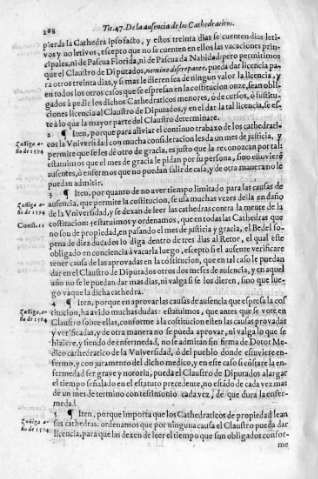 288 Tit. 47. De la ausencia de los Cathedraticos.
pierda la Cathedra ipso facto, y estos treinta dias se cuenten dias leti-
vos y no letivos, excepto que no se cuenten en ellos las vacaciones prin-
cipales, ni de Pascua Florida, ni de Pascua de Navidad: pero permitimos
que el Claustro de Diputados, nemine discrepante, pueda dar licencia pa-
ra otros treinta dias, y si mas le diere sea de ningun valor la licencia, y
en todos los otros casos que se espresan en la constitucion onze, sean obli-
gados à pedir los dichos Cathedraticos menores, ò de cursos, ò sustitu-
ciones licencia al Claustro de Diputados, y en el dar la tal licencia, se es-
te à lo que la mayor parte del claustro determinare.
2. ¶ Iten, porque para aliviar el continuo trabajo de los cathedrati-
cos la Vniversidad con mucha consideracion les da un mes de justicia, y
Zuñiga a-
ño de 1594
permite que se les dè otro de gracia, es justo que la reconozcan por tal:
estatuimos que el mes de gracia le pidan por su persona, sino estuvieren
ausentes, ò enfermos que no puedan salir de casa, y de otra manera no le
puedan admitir.
3. ¶ Iten, porquanto de no aver tiempo limitado para las causas de
Zuñiga a-
ño de 1594
ausencia, que permite la costitucion, se usa muchas vezes della en daño
de la Vniversidad, y se dexan de leer las cathedras contra la mente de la
Constit. 11
costitucion: estatuimos y ordenamos, que en todas las Cathedras que
no son de propiedad, en pasando el mes de justicia y gracia, el Bedel so
pena de diez ducados lo diga dentro de tres dias al Retor, el qual este
obligado en conciencia à vacarla luego, escepto si el ausente verificare
tener causa de las aprovadas en la costitucion, que en tal caso le puedan
dar en el Claustro de Diputados otros dos meses de ausencia, y en aquel
año no se le puedan dar mas dias, ni valga si se los dieren, sino que lue-
go vaque la dicha cathedra.
4. ¶ Iten, porque en aprovar las causas de ausencia que espresa la cos
Zuñiga, a-
ño de 1594
titucion, ha avido muchas dudas: estatuimos, que antes que se vote en
Claustro sobre ellas, conforme à la costitucion esten las causas provadas
y verificadas, y de otra manera no se pueda aprovar, ni valga lo que se
hiziere, y siendo de enfermedad, no se admita sin firma de Dotor Me-
dico cathedratico de la Vniversidad, ò del pueblo donde estuviere en-
fermo, y con juramento del dicho medico, y en este caso si costare la en-
fermedad ser grave y notoria, pueda el Claustro de Diputados alargar
el tiempo señalado en el estatuto precedente, no estando de cada vez mas
de un mes de termino con testimonio cada vez, de que dura la enfer-
medad.
5. ¶ Iten, porque importa que los Cathedraticos de propiedad lean
Zuñiga a-
ño de 1594
sus cathedras, ordenamos que por ninguna causa el Claustro pueda dar
licencia, para que las dexen de leer el tiempo que son obligados confor-
me